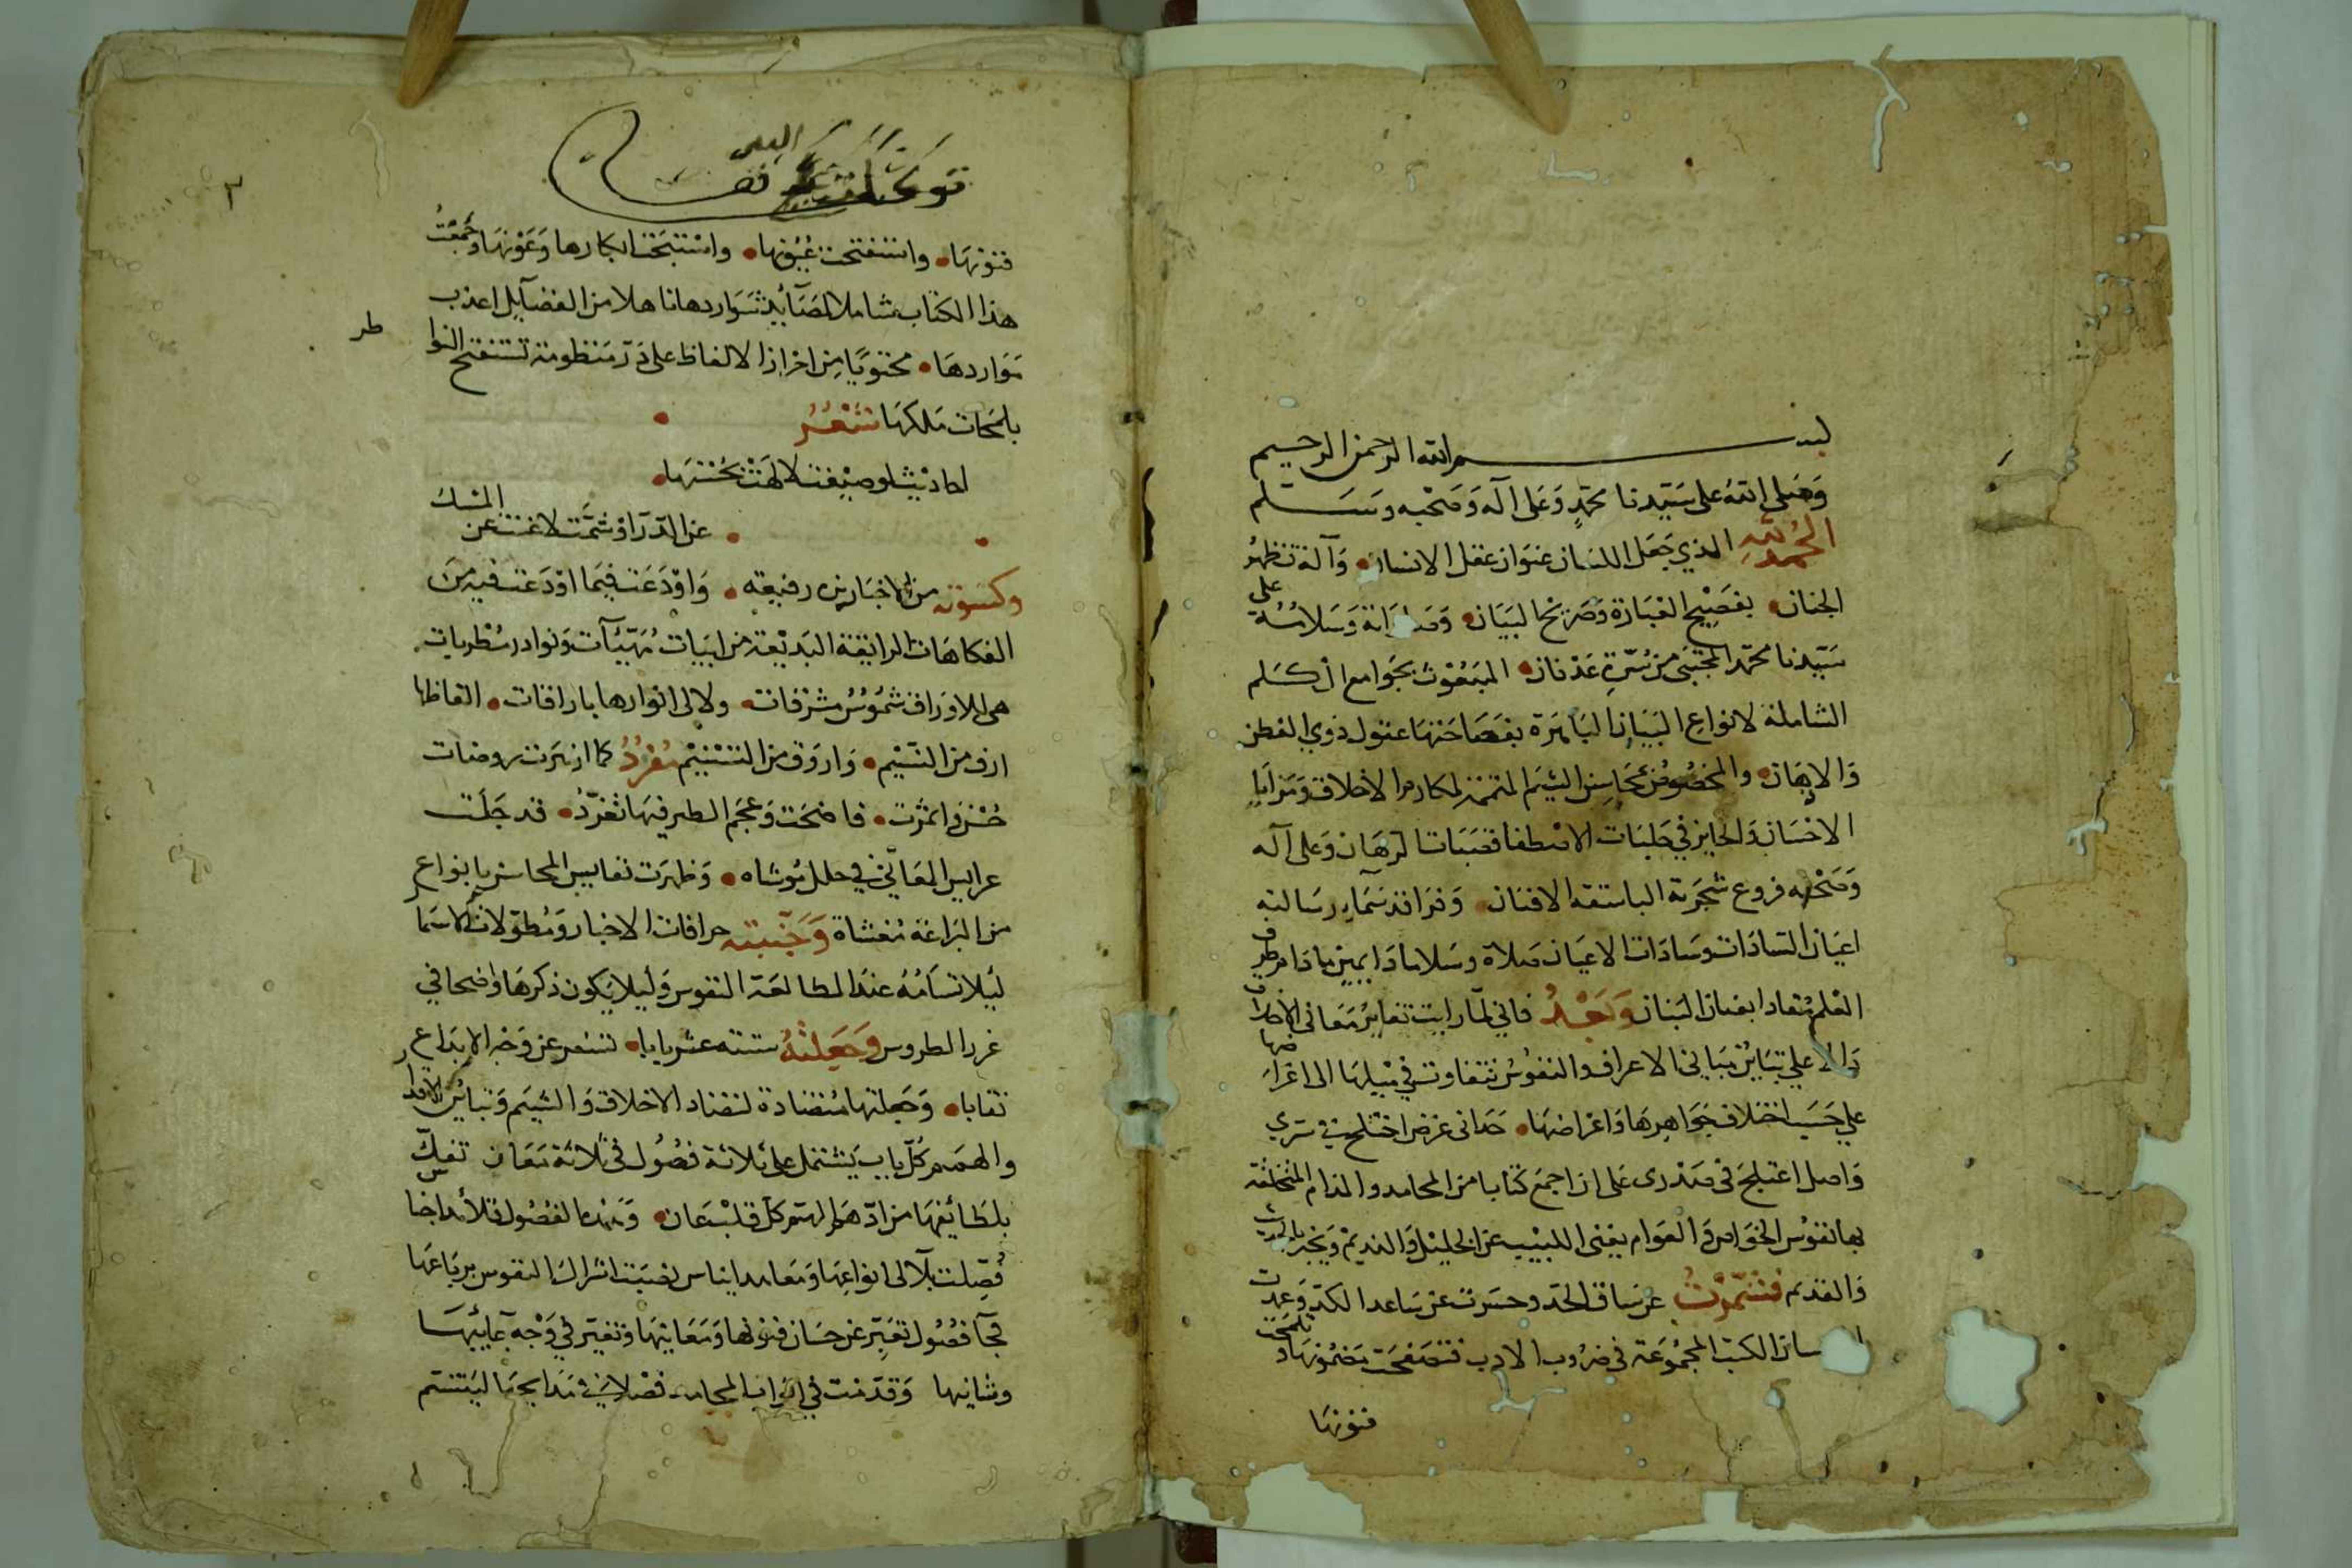 بسم الله الرحمن الرحيم
وصلى الله على سيدنا محمد وعلى آله وصحبه وسلم
الحمد لله الذي جعل اللسان عنوان عقل الانسان وآلة تظهر
الجنان بفصيح العبارة وصريح البيان وصلاته وسلامه على
سيدنا محمد المجتبى من سرة عدنان المبعوث بجوامع الكلم
الشاملة لانواع البيان الباهرة بفصاحتها عقول ذوي الفطن
والاذهان والمخصوص بمحاسن الشيم المتمم لمكارم الاخلاق ومزايا
الاحسان والحايز في حلبات الاصطفا قصبات الرهان وعلى آله
وصحبه فروع شجرته الباسقة الافنان وفراقد سماء رسالته
اعيان السادات وسادات الاعيان صلاة وسلاما دايمين ما دام طرف
القلم منقادا بعنان البنان وبعد فاني لما رايت تغاير معانى الاوصاف
دالا علي تباين مبانى الاعراف والنفوس تتفاوت في ميلها الى اغراضها
علي حسب اختلاف جواهرها واعراضها حدانى غرض اختلج في سري
واصل اعتلج في صدرى على ان اجمع كتابا من المحامد والمذام المتخلقة
بها نفوس الخواص والعوام يغنى اللبيب عن الخليل والنديم ويخبر بالحديث
والقديم فشمرت عن ساق الجد وحسرت عن ساعد الكد وعمدت
الكتب المجموعة في ضروب الادب فتصفحت مضمونها وتلمحت
فنونها
توكلت
فنونها واستفتحت عيونها وانتخبت ابكارها وعونها وجمعت
هذا الكتاب شاملا لصايد شواردها ناهلا من الفضايل اعذب
مواردها محتويا من احراز الالفاظ على در منظومة تستفتح النوا
طر
بلمحات ملكها شعر
احاديث لو صيغت لالهت بحسنها
عن الدر او شمت لاغنت عن المسك
وكسوته من الاخبار رفيعه واودعت فيما اودعت فيه من
الفكاهات الرايقة البديعة من ابيات مهيئات ونوادر مطربات
هي للاوراق شموس مشرقات ولالى انوارها بارقات الفاظها
ارق من النسيم واروق من التسنيم مفرد كما ازهرت روضات
حزن واثمرت فاضحت وعجم الطير فيها تغرد قد جلت
عرايس المعاني في حلل موشاه وظهرت نفايس المحاسن بانواع
من البراعة مغشاة وجنبته خرافات الاخبار ومطولات الاسما
ليلا تسامه عند المطالعة النفوس وليلا يكون ذكرها واضحا في
غرر الطروس وجعلته ستة عشر بابا تسفر عن وجه الابداع
نقابا وجعلتها متضادة لتضاد الاخلاق والشيم وتباين الاقدار
والهمم كل باب يشتمل على ثلاثة فصول في ثلاثة معان تفك
بلطائفها من ادهم الهم كل قلب عان وهذه الفصول قلائد اجناس
فصلت بلآلى انواعها ومعاهد ايناس نصبت اشراك النفوس برباعها
فجآ فصول تعبر عن حسان فنونها ومعانيها وتغبر في وجه عايبها
وشانيها وقدمت في ابواب المحامد فصلا في مدايحها ليتنسم